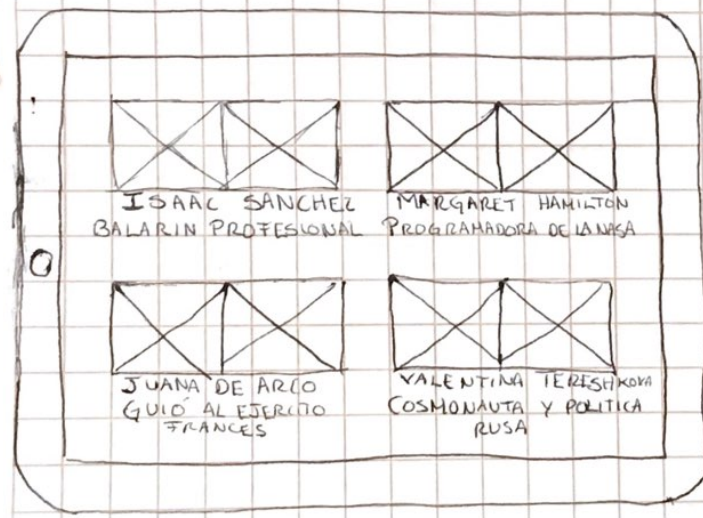 ISAAC SANCHEZ
BALARIN PROFESIONAL
MARGARET HAMILTON
PROGRAMADORA DE LA NASA
JUANA DE ARCO
GUIÓ AL EJERCITO
FRANCES
VALENTINA TERESHKOVA
COSMONAUTA Y POLITICA
RUSA